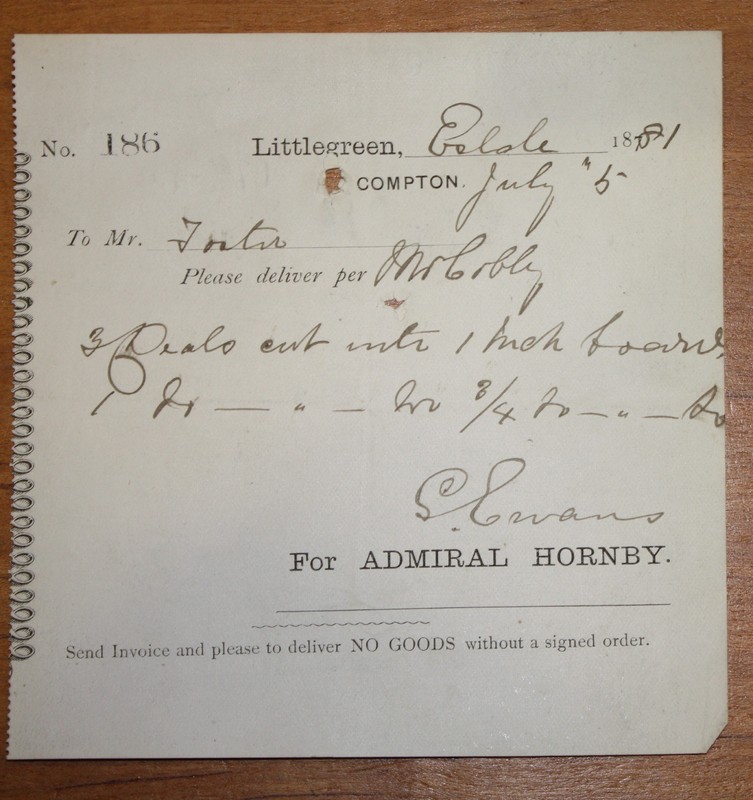 No. 186 Littlegreen, Estate 1881
COMPTON. July " 5
To Mr. Foster
Please deliver per Mr Cobby
3 Deals cut into 1 Inch boards
1 do — " — do 3/4 do — " — do
G. Evans
For ADMIRAL HORNBY.
Send Invoice and please to deliver NO GOODS without a signed order.